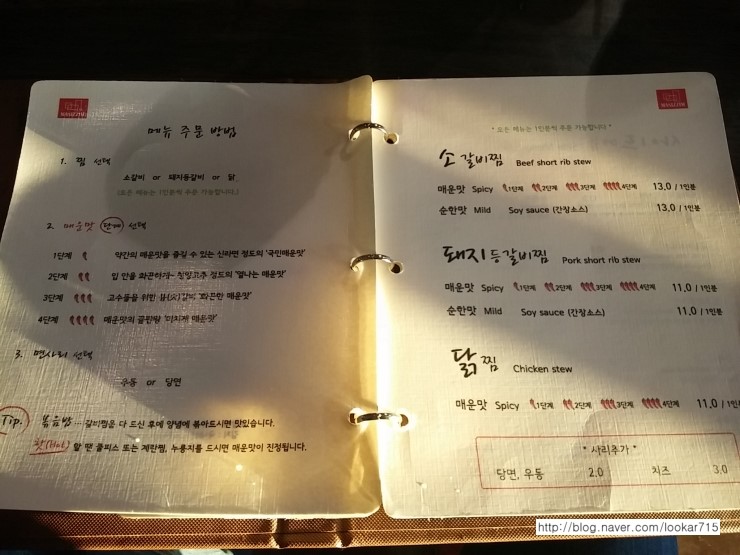 메뉴 주문 방법
1. 찜 선택
소갈비 or 돼지등갈비 or 닭
(모든 메뉴는 1인분씩 주문 가능합니다.)
2. 매운맛 단계 선택
1단계 약간의 매운맛을 즐길 수 있는 신라면 정도의 '국민매운맛'
2단계 입 안을 화끈하게~ 청양고추 정도의 '열나는 매운맛'
3단계 고수들을 위한 '화끈한 매운맛'
4단계 매운맛의 끝판왕 '미치게 매운맛'
3. 면사리 선택
우동 or 당면
Tip. 볶음밥 … 갈비찜은 다 드신 후에 양념에 볶아드시면 맛있습니다.
핫(Hot) 할 땐 쿨피스 또는 계란찜, 누룽지를 드시면 매운맛이 진정됩니다.
* 모든 메뉴는 1인분씩 주문 가능합니다 *
소갈비찜 Beef short rib stew
매운맛 Spicy 1단계 2단계 3단계 4단계 13.0 / 1인분
순한맛 Mild Soy sauce (간장소스) 13.0 / 1인분
돼지등갈비찜 Pork short rib stew
매운맛 Spicy 1단계 2단계 3단계 4단계 11.0 / 1인분
순한맛 Mild Soy sauce (간장소스) 11.0 / 1인분
닭찜 Chicken stew
매운맛 Spicy 1단계 2단계 3단계 4단계 11.0 / 1인분
* 사리추가 *
당면, 우동 2.0 치즈 3.0
http://blog.naver.com/lookar715